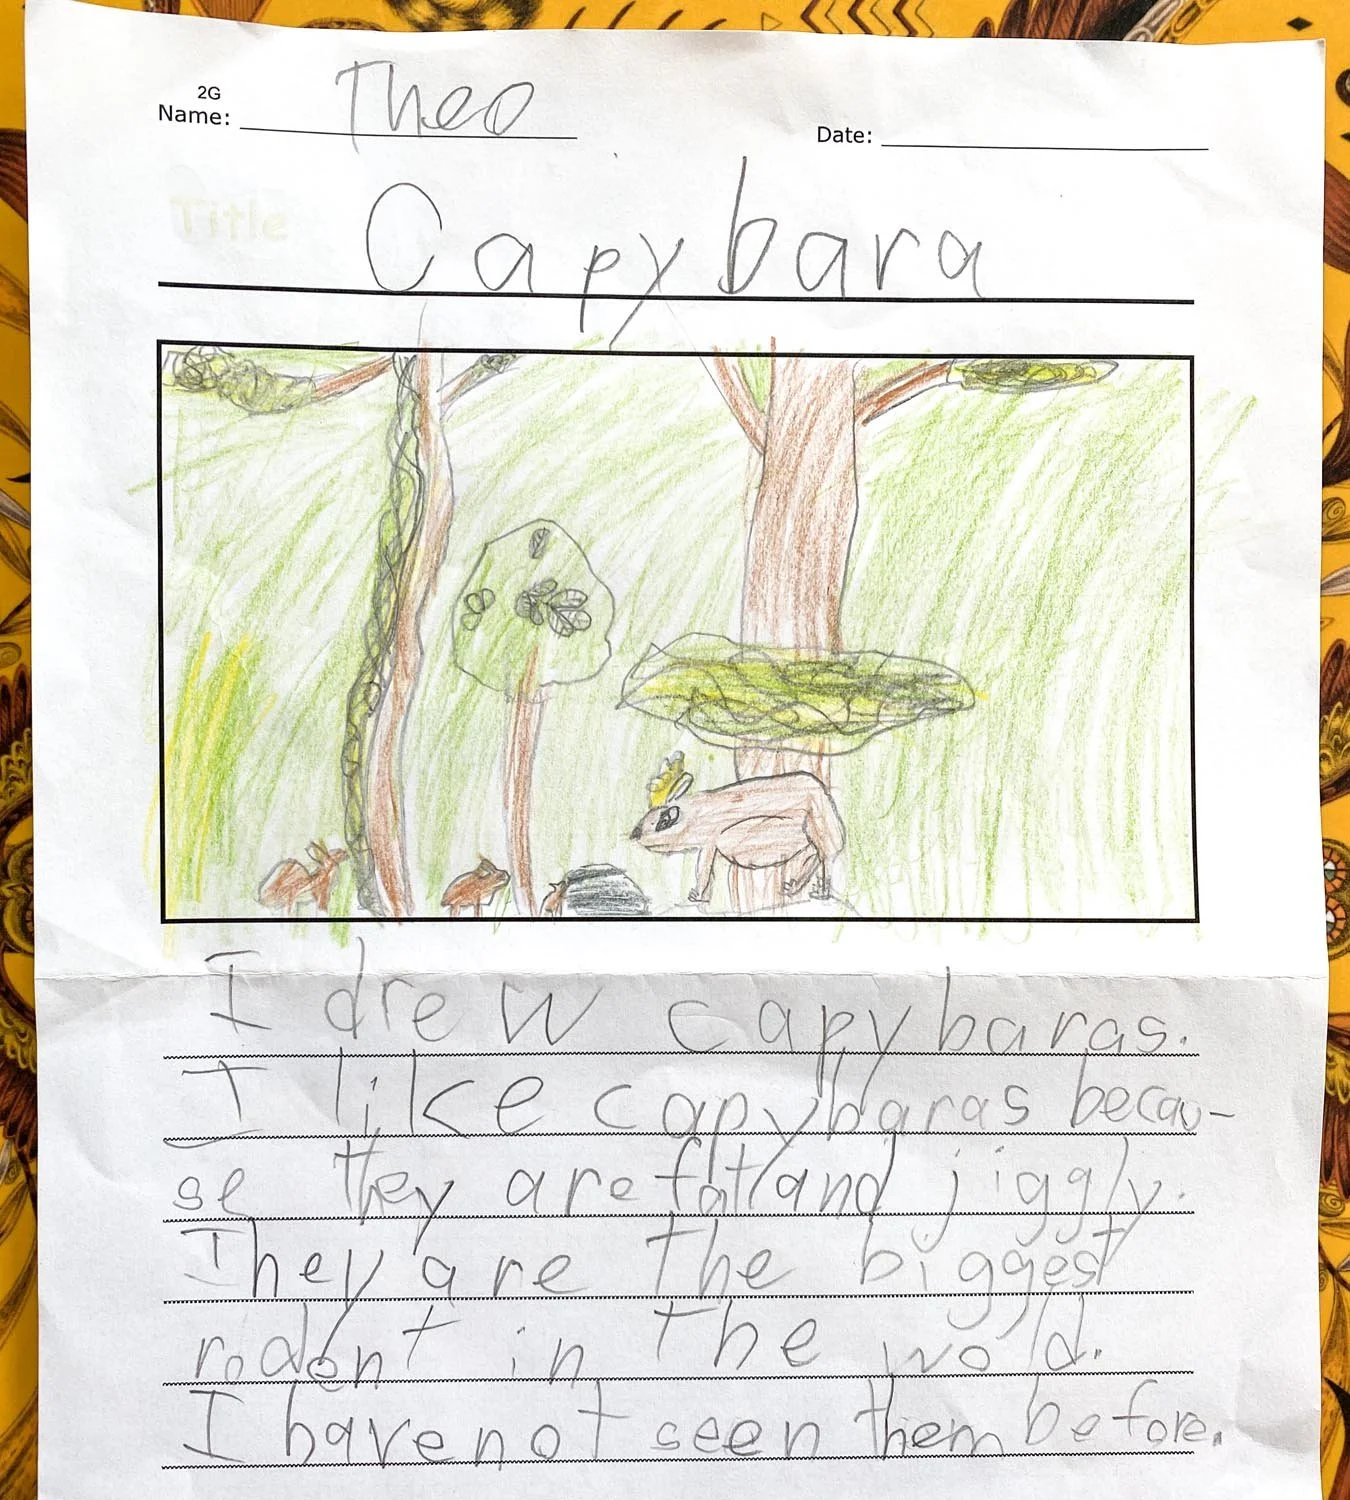 2G
Name: Theo
Date:
Title
Capybara
I drew capybaras.
I like capybaras becau-
se they are fat and jiggly.
They are the biggest
rodent in the wold.
I have not seen them before.